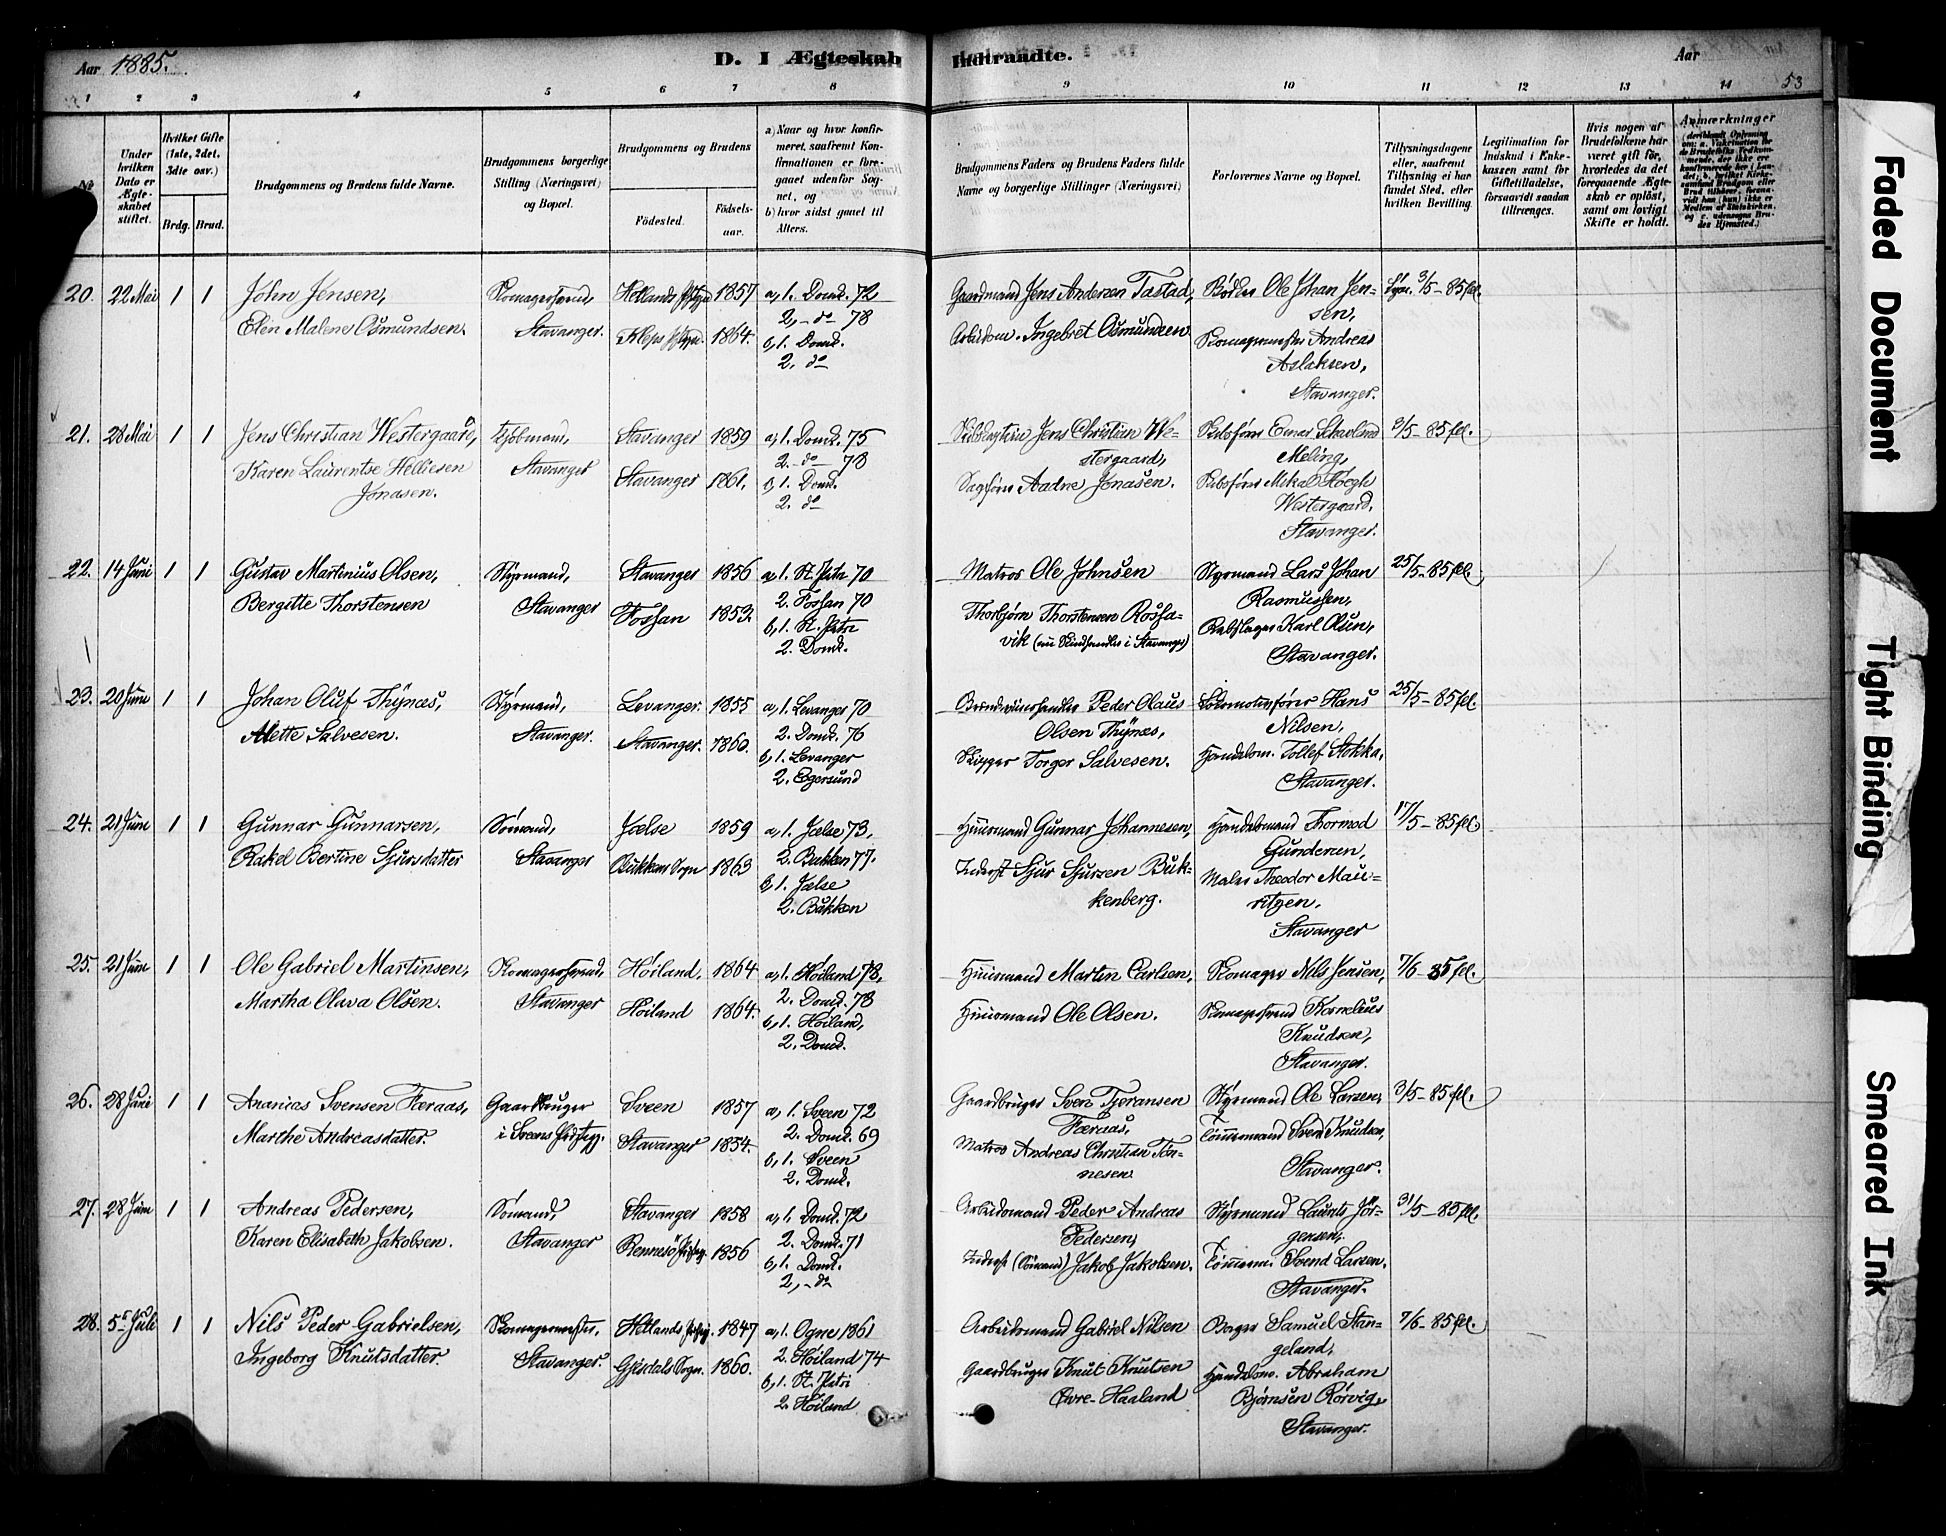 Aar 1885.
D. I Ægteskab Indtraadte.
Aar
53
1 2 3 4 5 6 7 8 9 10 11 12 13 14
No
Under hvilken Dato er Ægteskabet stiftet.
Hvilket Gifte (1ste, 2det, 3die osv.)
Brdg. Brud.
Brudgommens og Brudens fulde Navne.
Brudgommens borgerlige Stilling (Næringsvei) og Bopæl.
Brudgommens og Brudens
Födested.
Födselsaar.
a) Naar og hvor konfirmeret, saafremt Konfirmationen er foregaaet udenfor Sognet, og
b) hvor sidst gaaet til Alters.
Brudgommens Faders og Brudens Faders fulde Navne og borgerlige Stillinger (Næringsvei)
Forlovernes Navne og Bopæl.
Tillysningsdagene eller, saafremt Tillysning ei har fundet Sted, efter hvilken Bevilling.
Legitimation for Indskud i Enkekassen samt for Giftetilladelse, forsaavidt saadan tiltrænges.
Hvis nogen af Brudefolkene har været gift før, hvorledes da det foregaaende Ægteskab er opløst, samt om lovligt Skifte er holdt.
Anmærkninger
20. 22 Mai 1 1 John Jensen, Skomagersvend, Hetlands Prstgjd 1857 a, 1. Domk. 72 Gaardmand Jens Andersen Tastad, Bødker Ole Johan Jensen, 3/5-85 fel.
Elen Malene Osmundsen. Stavanger. Kleps Prstgjd. 1864. 2, - do 78 Arbeidsm. Ingebret Osmundsen Skomagermester Andreas Aslaksen,
b, 1. Domk.
2. do Stavanger.
21. 28 Mai 1 1 Jens Christian Westergaard, Stavanger 1859 a, 1. Domk. 75 Jens Christian Westergaard, Skibsfører Einar Meling, 3/5-85 fel.
Karen Laurentse Helliesen Jonasen. Stavanger Stavanger 1861. 2. - do - 78 Sagfører Aadne Jonasen. Skibsfører Mikal Høegh Westergaard,
b, 1. Domk.
2. do Stavanger.
22. 14 Juni 1 1 Gustav Martinius Olsen, Styrmand, Stavanger 1856 a, 1. St. Petri 70 Matros Ole Johnsen Styrmand Lars Johan Rasmussen, 25/5-85 fel.
Bergitte Thorstensen Stavanger Fossan 1853. 2. Fossan 70 Thorbjørn Thorstensen Rossavik (nu Skindhandler i Stavanger) Rebslager Karl Olsen,
b, 1. St. Petri
2. Domk. Stavanger.
23. 20 Juni 1 1 Johan Oluf Thynæs, Styrmand, Levanger. 1855 a, 1. Levanger 70 Brændevinshandler Peder Olaus Olsen Thynæs, Lokomotivfører Hans Nilsen, 25/5-85 fel.
Alette Salvesen. Stavanger. Stavanger. 1860. 2. Domk. 76 Skipper Torger Salvesen. Handelsm. Tollef Stokka,
b, 1. Levanger
2. Egersund Stavanger.
24. 21 Juni 1 1 Gunnar Gunnarsen, Sømand, Jælse 1859 a, 1. Jælse 73, Huusmand Gunnar Johannesen, Handelsmand Thormod Gundersen, 17/5-85 fel.
Rakel Bertine Sjursdatter Stavanger Bukkens Sogn 1863 2. Bukken 77. Inderst Sjur Sjursen Bukkenberg. Maler Theodor Mauritzen,
b, 1. Jælse
2. Bukken Stavanger
25. 21 Juni 1 1 Ole Gabriel Martinsen, Skomagersvend, Høiland. 1864 a, 1. Høiland 78, Huusmand Martin Carlsen, Skomager Nils Jensen, 7/6-85 fel.
Martha Olava Olsen. Stavanger Høiland 1864. 2. Domk. 78 Huusmand Ole Olsen. Skomagersvend Kornelius Knudsen,
b, 1. Høiland,
2. Domk. Stavanger.
26. 28 Juni 1 1 Ananias Svensen Færaas, Gaardbruger Sveen 1857 a, 1. Sveen 72 Gaardbruger Sven Færaas, Styrmand Ole Larsen, 3/5-85 fel.
Marthe Andreasdatter. i Sveens Prstgj. Stavanger 1854. 2. Domk. 69 Matros Andreas Christian Tønnesen Tømmermand Sven Knudsen,
b, 1. Sveen
2. Domk. Stavanger.
27. 28 Juni 1 1 Andreas Pedersen, Sømand, Stavanger 1858 a, 1. Domk. 72 Arbeidsmand Peder Andreas Pedersen, Styrmand Laurits Jörgensen, 31/5-85 fel.
Karen Elisabeth Jakobsen. Stavanger Rennesö Prstgj. 1856 2. Domk. 71 Inderst (Sømand) Jakob Jakobsen. Tømmerm. Svend Larsen.
b, 1. Domk.
2, - do Stavanger.
28. 5te Juli 1 1 Nils Peder Gabrielsen, Skomagermester, Hetlands Prstgj. 1847 a, 1. Ogne 1861 Arbeidsmand Gabriel Nilsen Borger Samuel Stangeland, 7/6-85 fel.
Ingeborg Knutsdatter. Stavanger. Gjesdals Sogn. 1860. 2. Høiland 74 Gaardbruger Knut Knutsen Øvre-Haaland Handelsm. Abraham Bjørnsen Rörvig,
b, 1. St. Petri
2. Høiland Stavanger.
Faded Document
Tight Binding
Smeared Ink